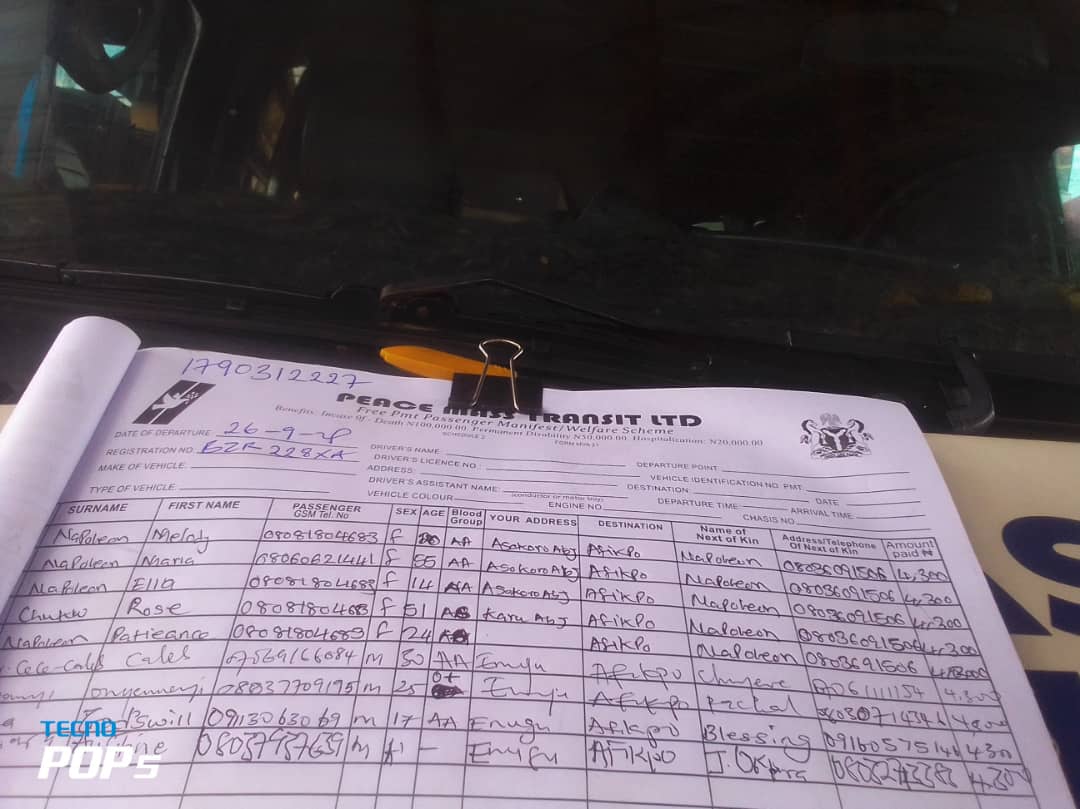 1790312227
PEACE MASS TRANSIT LTD
Free Pmt Passenger Manifest/Welfare Scheme
Benefits: Incase Of - Death N100,000.00 Permanent Disability N50,000.00 Hospitalization: N20,000.00
SCHEDULE 2
DATE OF DEPARTURE 26-9-
REGISTRATION NO. BZR 228XA
MAKE OF VEHICLE:
TYPE OF VEHICLE:
DRIVER'S NAME:
DRIVER'S LICENCE NO.:
ADDRESS:
DRIVER'S ASSISTANT NAME:
(conductor or motor boy)
VEHICLE COLOUR
ENGINE NO.
DEPARTURE POINT
VEHICLE IDENTIFICATION NO. PMT.
DESTINATION
DATE
DEPARTURE TIME
ARRIVAL TIME
CHASIS NO.
SURNAME FIRST NAME PASSENGER GSM Tel. No SEX AGE Blood Group YOUR ADDRESS DESTINATION Name of Next of Kin Address/Telephone Of Next of Kin Amount paid N
Napoleon Melody 08081804683 f AA Asokoro Abj Afikpo Napoleon 08036091506 4,300
Napoleon Maria 08060621441 f 55 AA Asokoro Abj Afikpo Napoleon 08036091506 4,300
Napoleon Ella 08081804683 f 14 AA Asokoro Abj Afikpo Napoleon 08036091506 4,300
Chukwu Rose 0808180468 f 51 AS Karu Abj Afikpo Napoleon 08036091506 4,300
Napoleon Patieance 08081804683 f 24 Afikpo Napoleon 0803691506 4,300
Caleb 07569166084 m 30 AA Enugu Afikpo
08037709195 m 25 O+ Enugu Afikpo Rachal 4,300
Goodswill 09113063069 m 17 AA Enugu Afikpo Blessing 09160575146 430
08037937639 m - Enugu Afikpo 4,300
TECNO
POP5